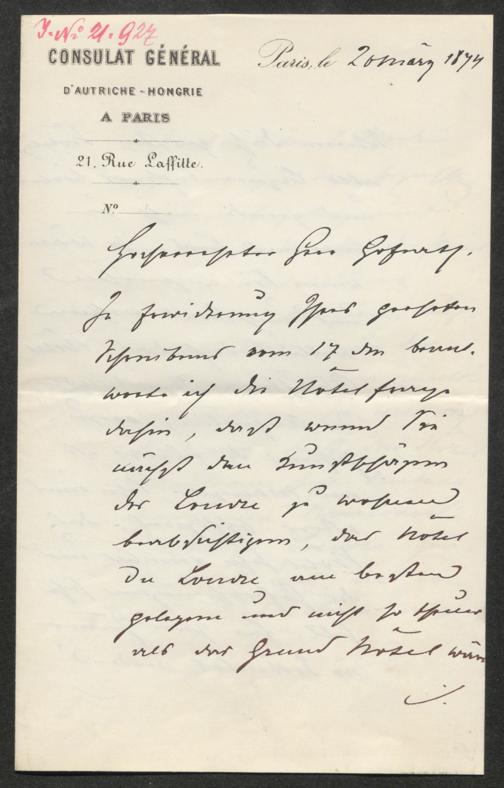 J. No 21.927
CONSULAT GÉNÉRAL
D'AUTRICHE-HONGRIE
A PARIS
21, Rue Laffitte.
No
Paris, le 20 März 1874
Hochverehrter Herr Hofrath.
In Erwiderung Ihres geehrten
Schreibens vom 17 den beant-
worte ich die Hôtelfrage
dahin, daß wenn Sie
nächst den Kunstschätzen
des Louvre zu wohnen
beabsichtigen, das Hôtel
du Louvre am besten
gelegen und nicht so theuer
als das Grand Hôtel wäre